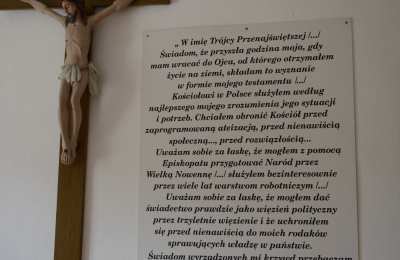 „ W imię Trójcy Przenajświętszej /.../
Świadom, że przyszła godzina moja, gdy
mam wracać do Ojca, od którego otrzymałem
życie na ziemi, składam to wyznanie
w formie mojego testamentu /.../
Kościołowi w Polsce służyłem według
najlepszego mojego zrozumienia jego sytuacji
i potrzeb. Chciałem obronić Kościół przed
zaprogramowaną ateizacją, przed nienawiścią
społeczną..., przed rozwiązłością...
Uważam sobie za łaskę, że mogłem z pomocą
Episkopatu przygotować Naród przez
Wielką Nowennę /.../ służyłem bezinteresownie
przez wiele lat warstwom robotniczym /.../
Uważam sobie za łaskę, że mogłem dać
świadectwo prawdzie jako więzień polityczny
przez trzyletnie więzienie i że uchroniłem
się przed nienawiścią do moich rodaków
sprawujących władzę w państwie.
Świadom wyrządzonych mi krzywd przebaczam